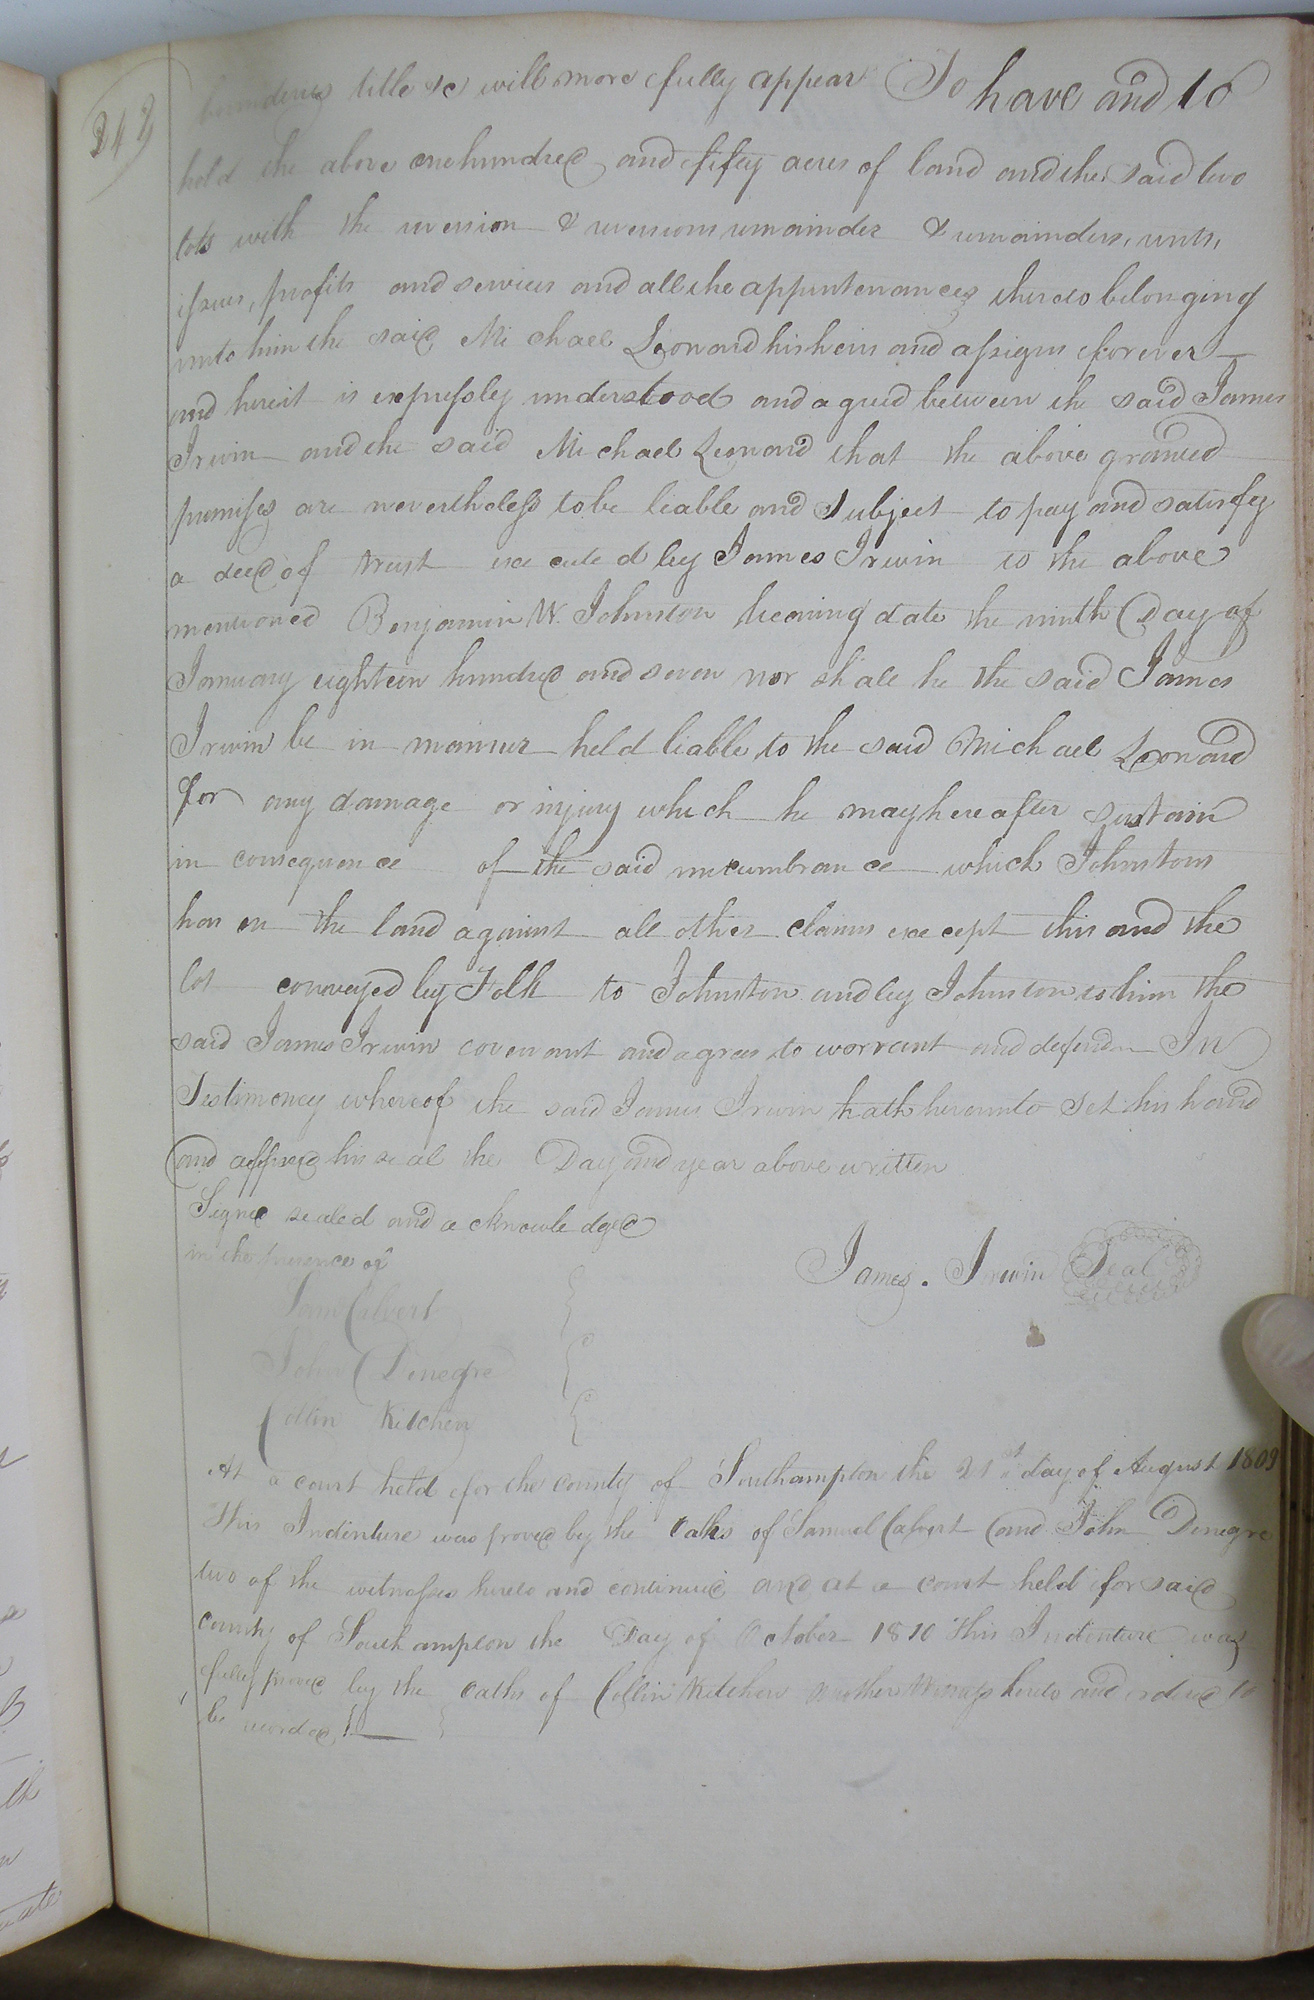 242
bounderies title &c will more fully appear To have and to
hold the above one hundred and fifty acres of land and the said two
lots with the reversion & reversions remainder & remainders, rents,
issues, profits and services and all the appurtenances thereto belonging
unto him the said Michael Leonard his heirs and assigns forever
and here it is expressly understood and agreed between the said James
Irwin and the said Michael Leonard that the above granted
premises are nevertheless to be liable and subject to pay and satisfy
a deed of trust executed by James Irwin to the above
mentioned Benjamin W. Johnston bearing date the ninth Day of
January eighteen hundred and seven nor shall he the said James
Irwin be in manner held liable to the said Michael Leonard
for any damage or injury which he may hereafter sustain
in consequence of the said incumbrance which Johnstons
has on the land against all other claims except this and the
lot conveyed by Folk to Johnston and by Johnston to him the
said James Irwin covenant and agrees to warrant and defend In
Testimoney whereof the said James Irwin hath hereunto set his hand
and affixed his seal the Day and year above written
Signed sealed and acknowledged
in the presence of
James. Irwin Seal
Saml Calvert
John Denegre
Collin Kitchen
At a court held for the county of Southampton the 21st day of August 1809
This Indenture was proved by the Oaths of Samuel Calvert and John Denegre
two of the witnesses hereto and continued and at a court held for said
county of Southampton the Day of October 1810 This Indenture was
fully proved by the oaths of Collin Kitchen another Witness hereto and ordered to
be recorded